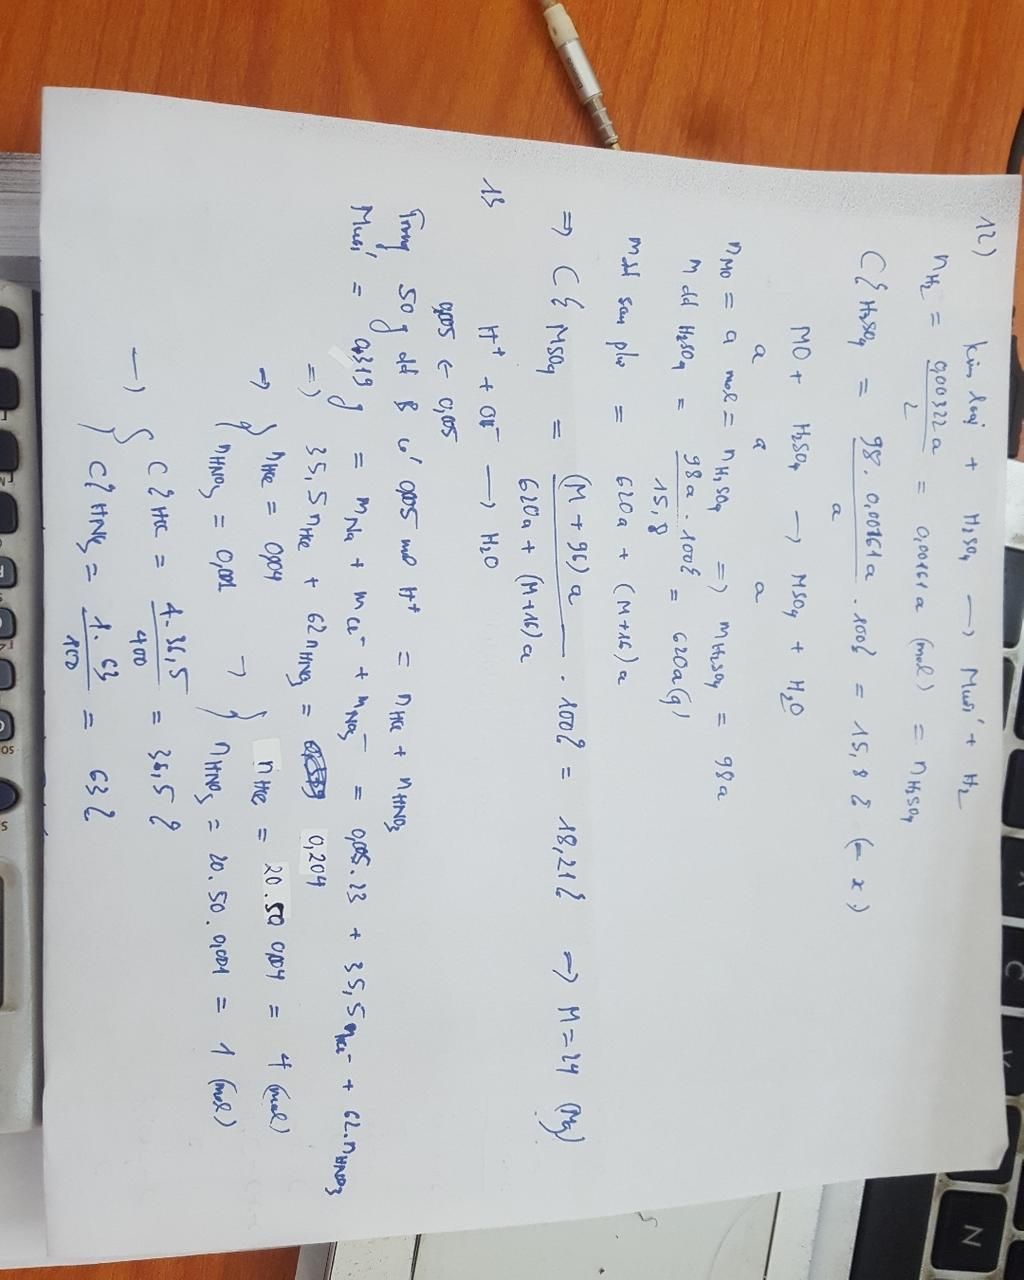 12)
Kim loại + H₂SO₄ → Muối + H₂
nH₂ = 0,00322a / 2 = 0,00161a (mol) = nH₂SO₄
C% H₂SO₄ = 98 . 0,00161a / a . 100% = 15,8 % (= x)
MO + H₂SO₄ → MSO₄ + H₂O
a a a
nMO = a mol = nH₂SO₄ ⇒ mH₂SO₄ = 98a
m dd H₂SO₄ = 98a . 100% / 15,8 = 620a (g)
mdd sau phư = 620a + (M+16)a
⇒ C% MSO₄ = (M + 96)a / 620a + (M+16)a . 100% = 18,21% ⇒ M = 24 (Mg)
13
H⁺ + OH⁻ → H₂O
0,005 ← 0,005
Trong 50g dd B có 0,005 mol H⁺ = nHCl + nHNO₃
Muối = 0,319 g = mNa + mCl⁻ + mNO₃⁻ = 0,005.23 + 35,5nHCl⁻ + 62.nHNO₃
⇒ 35,5nHCl + 62nHNO₃ = 0,204
⇒ { nHCl = 0,004 nHNO₃ = 0,001 → { nHCl = 20.50 0,004 = 4 (mol)
nHNO₃ = 20.50.0,001 = 1 (mol)
→ { C% HCl = 4.36,5 / 400 = 36,5 %
C% HNO₃ = 1.63 / 100 = 63%
SO
S
X
C
V
N